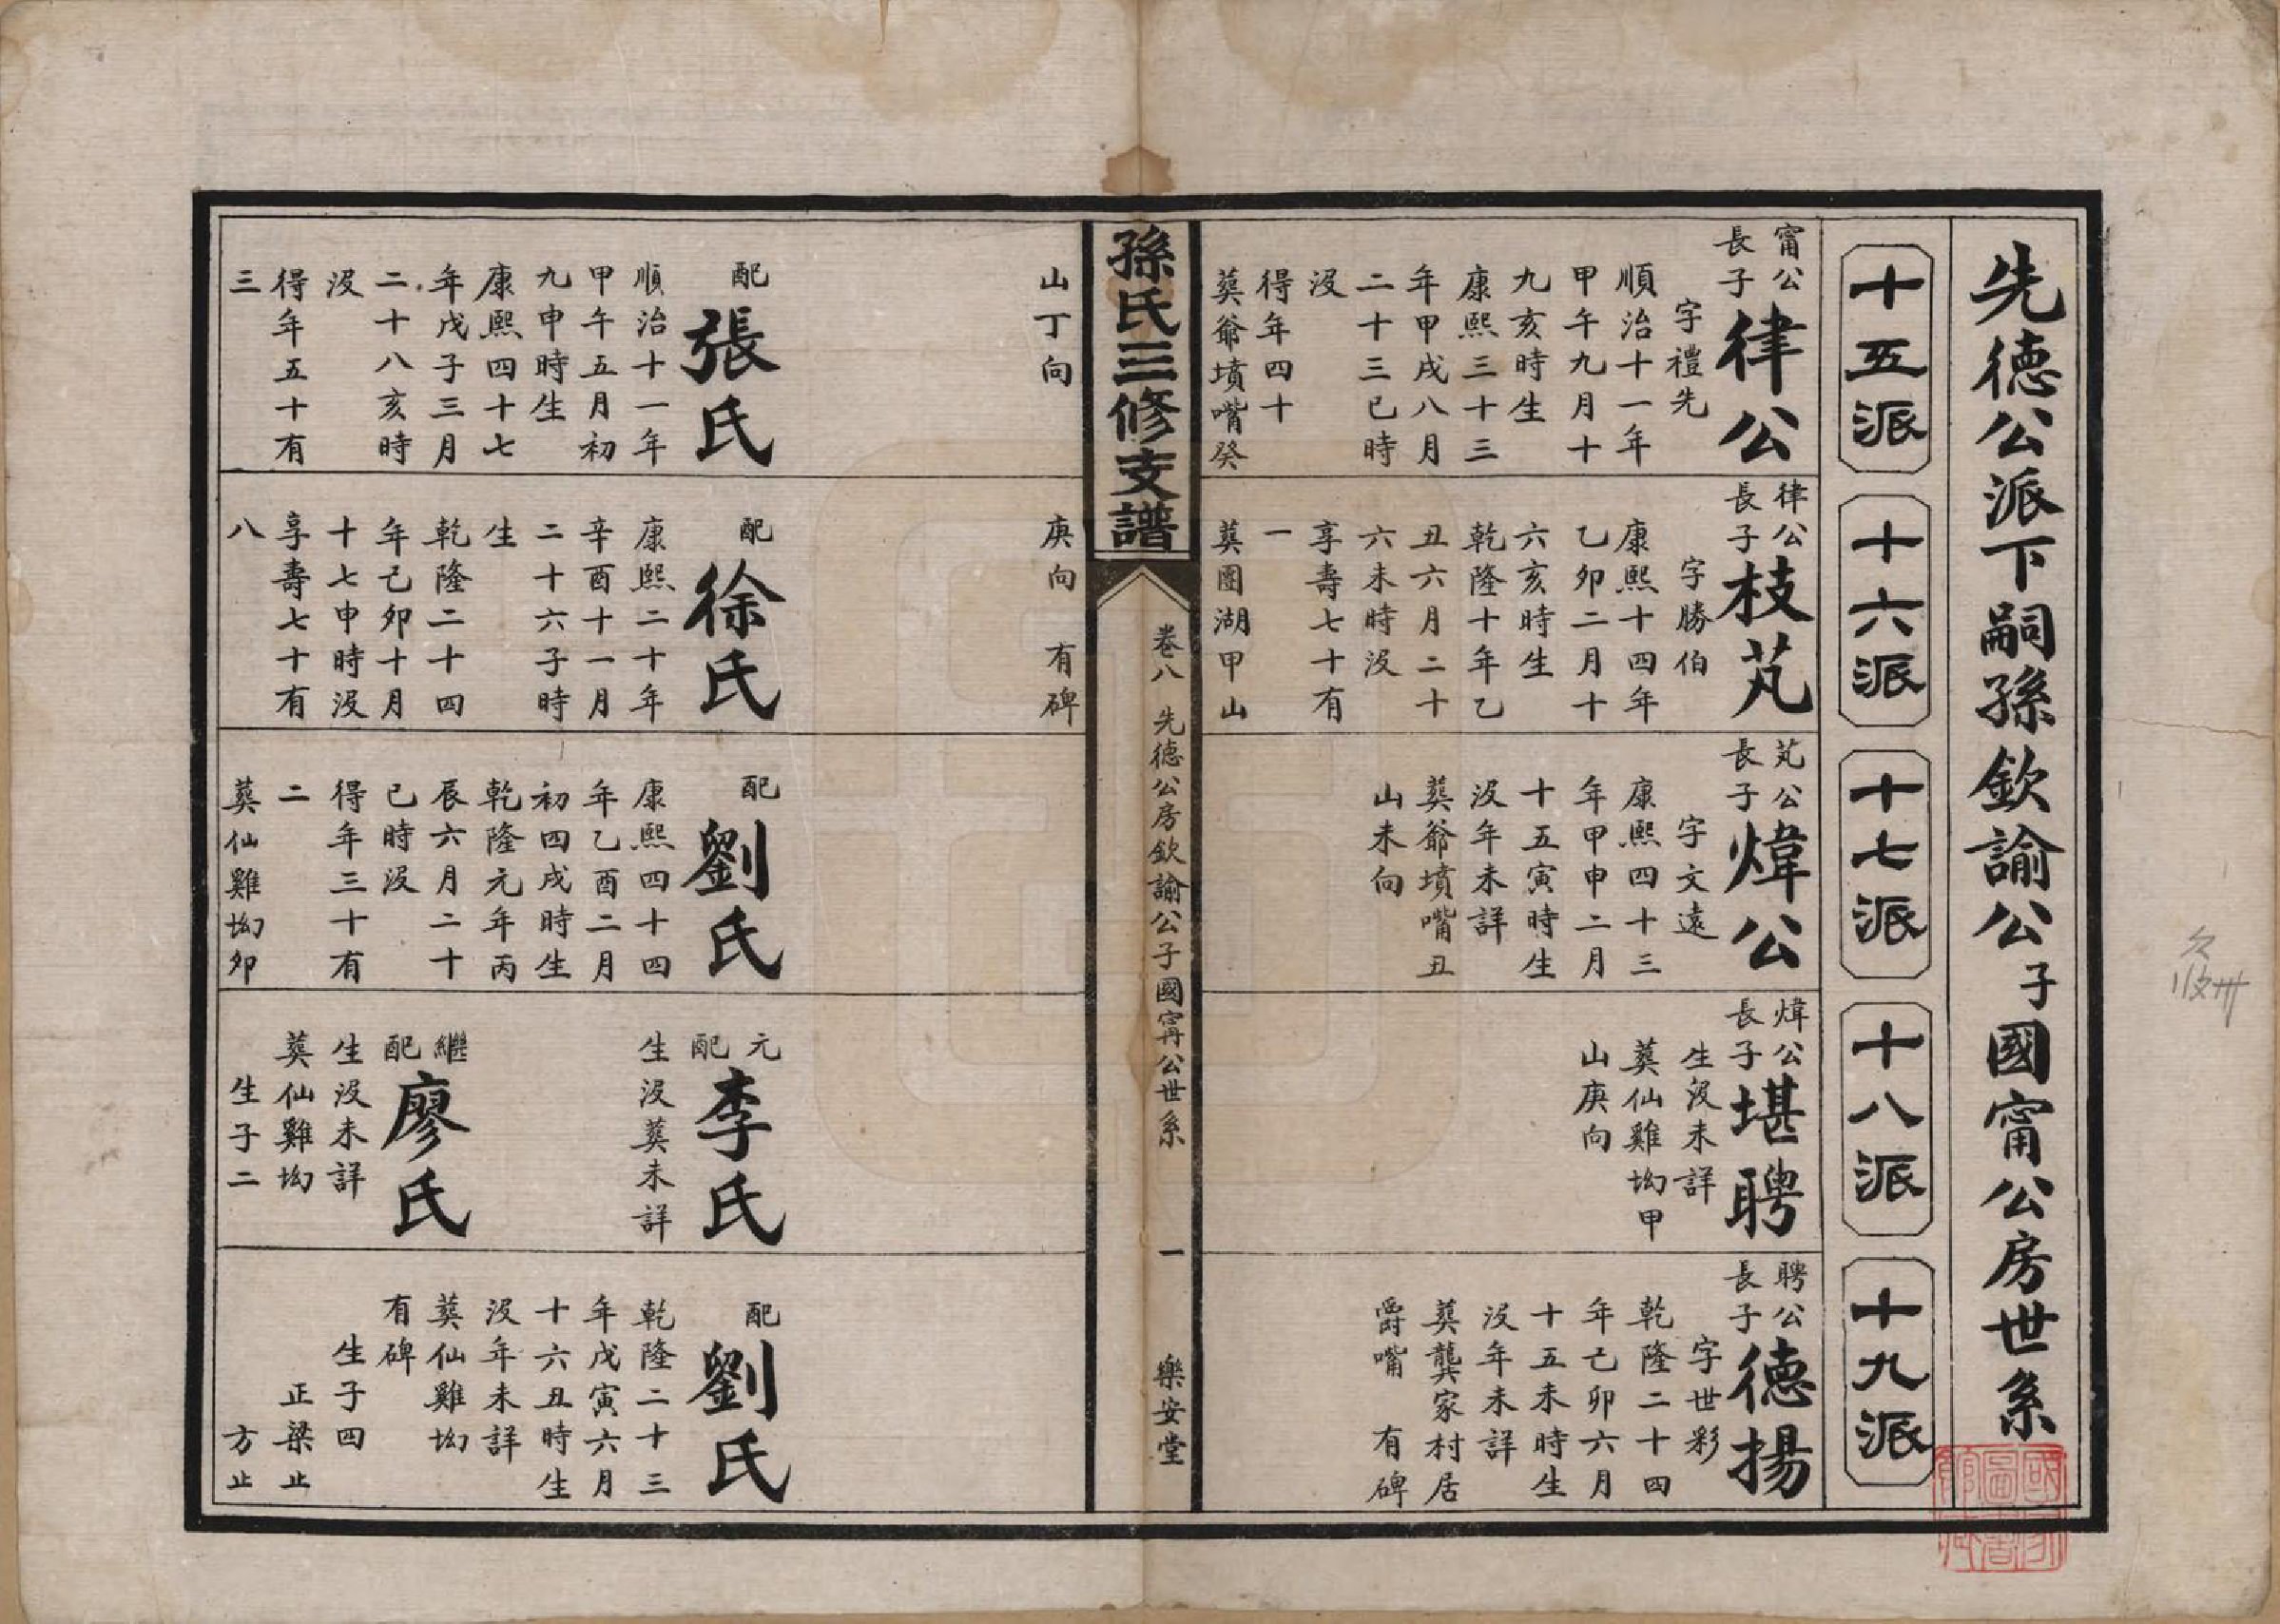 先德公派下嗣孫欽諭公子國甯公房世系
十五派
十六派
十七派
十八派
十九派
甯公
長子
律公
字禮先
順治十一年
甲午九月十
九亥時生
康熙三十三
年甲戌八月
二十三巳時
沒
得年四十
葬爺墳嘴癸
山丁向
配
張氏
順治十一年
甲午五月初
九申時生
康熙四十七
年戊子三月
二十八亥時
沒
得年五十有
三
律公
長子
枝芃
字勝伯
康熙十四年
乙卯二月十
六亥時生
乾隆十年乙
丑六月二十
六未時沒
享壽七十有
一
葬團湖甲山
庚向 有碑
配
徐氏
康熙二十年
辛酉十一月
二十六子時
生
乾隆二十四
年己卯十月
十七申時沒
享壽七十有
八
芃公
長子
煒公
字文遠
康熙四十三
年甲申二月
十五寅時生
沒年未詳
葬爺墳嘴丑
山未向
配
劉氏
康熙四十四
年乙酉二月
初四戌時生
乾隆元年丙
辰六月二十
巳時沒
得年三十有
二
葬仙雞坳卯
煒公
長子
堪聘
生沒未詳
葬仙雞坳甲
山庚向
元
配
李氏
生沒葬未詳
繼
配
廖氏
生沒未詳
葬仙雞坳
生子二
聘公
長子
德揚
字世彩
乾隆二十四
年己卯六月
十五未時生
沒年未詳
葬龔家村居
爵嘴 有碑
配
劉氏
乾隆二十三
年戊寅六月
十六丑時生
沒年未詳
葬仙雞坳
有碑
生子四
正梁止
方止
孫氏三修支譜
卷八 先德公房欽諭公子國甯公世系
一
樂安堂
國家圖書館藏